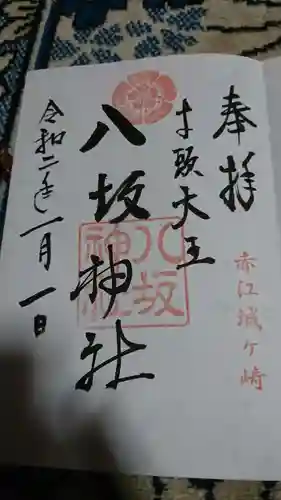 奉拝
赤江城ヶ崎
牛頭大王
八坂神社
八坂
神社
令和二年一月一日